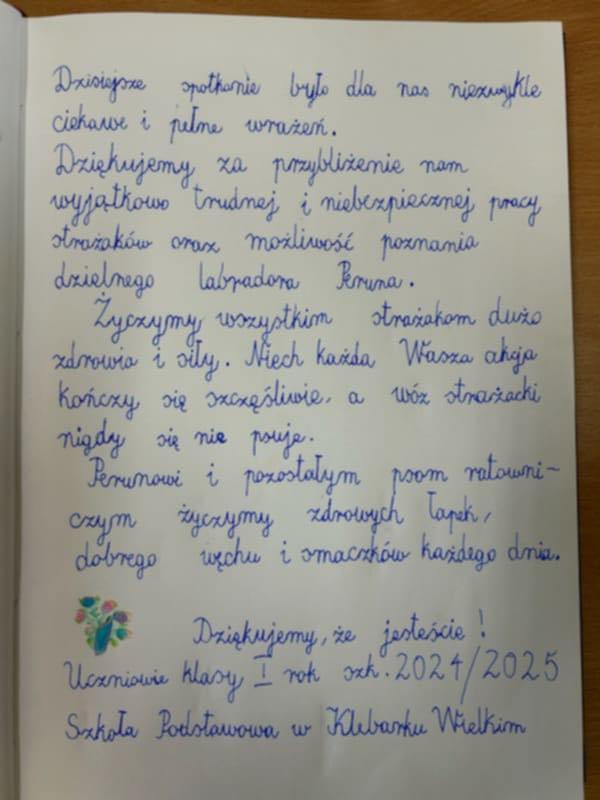 Dzisiejsze spotkanie było dla nas niezwykle
ciekawe i pełne wrażeń.
Dziękujemy za przybliżenie nam
wyjątkowo trudnej i niebezpiecznej pracy
strażaków oraz możliwość poznania
dzielnego labradora Peruna.
Życzymy wszystkim strażakom dużo
zdrowia i siły. Niech każda Wasza akcja
kończy się szczęśliwie, a wóz strażacki
nigdy się nie psuje.
Perunowi i pozostałym psom ratowni-
czym życzymy zdrowych łapek,
dobrego węchu i smaczków każdego dnia.
Dziękujemy, że jesteście!
Uczniowie klasy I rok szk. 2024/2025
Szkoła Podstawowa w Klebarku Wielkim